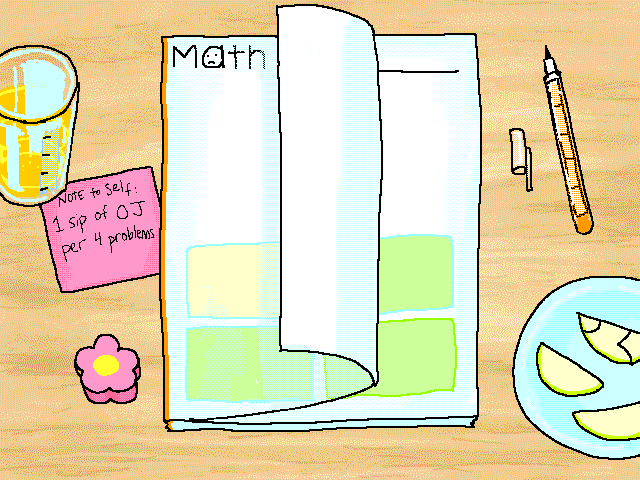 Math
NOTE to Self:
1 sip of OJ
per 4 problems